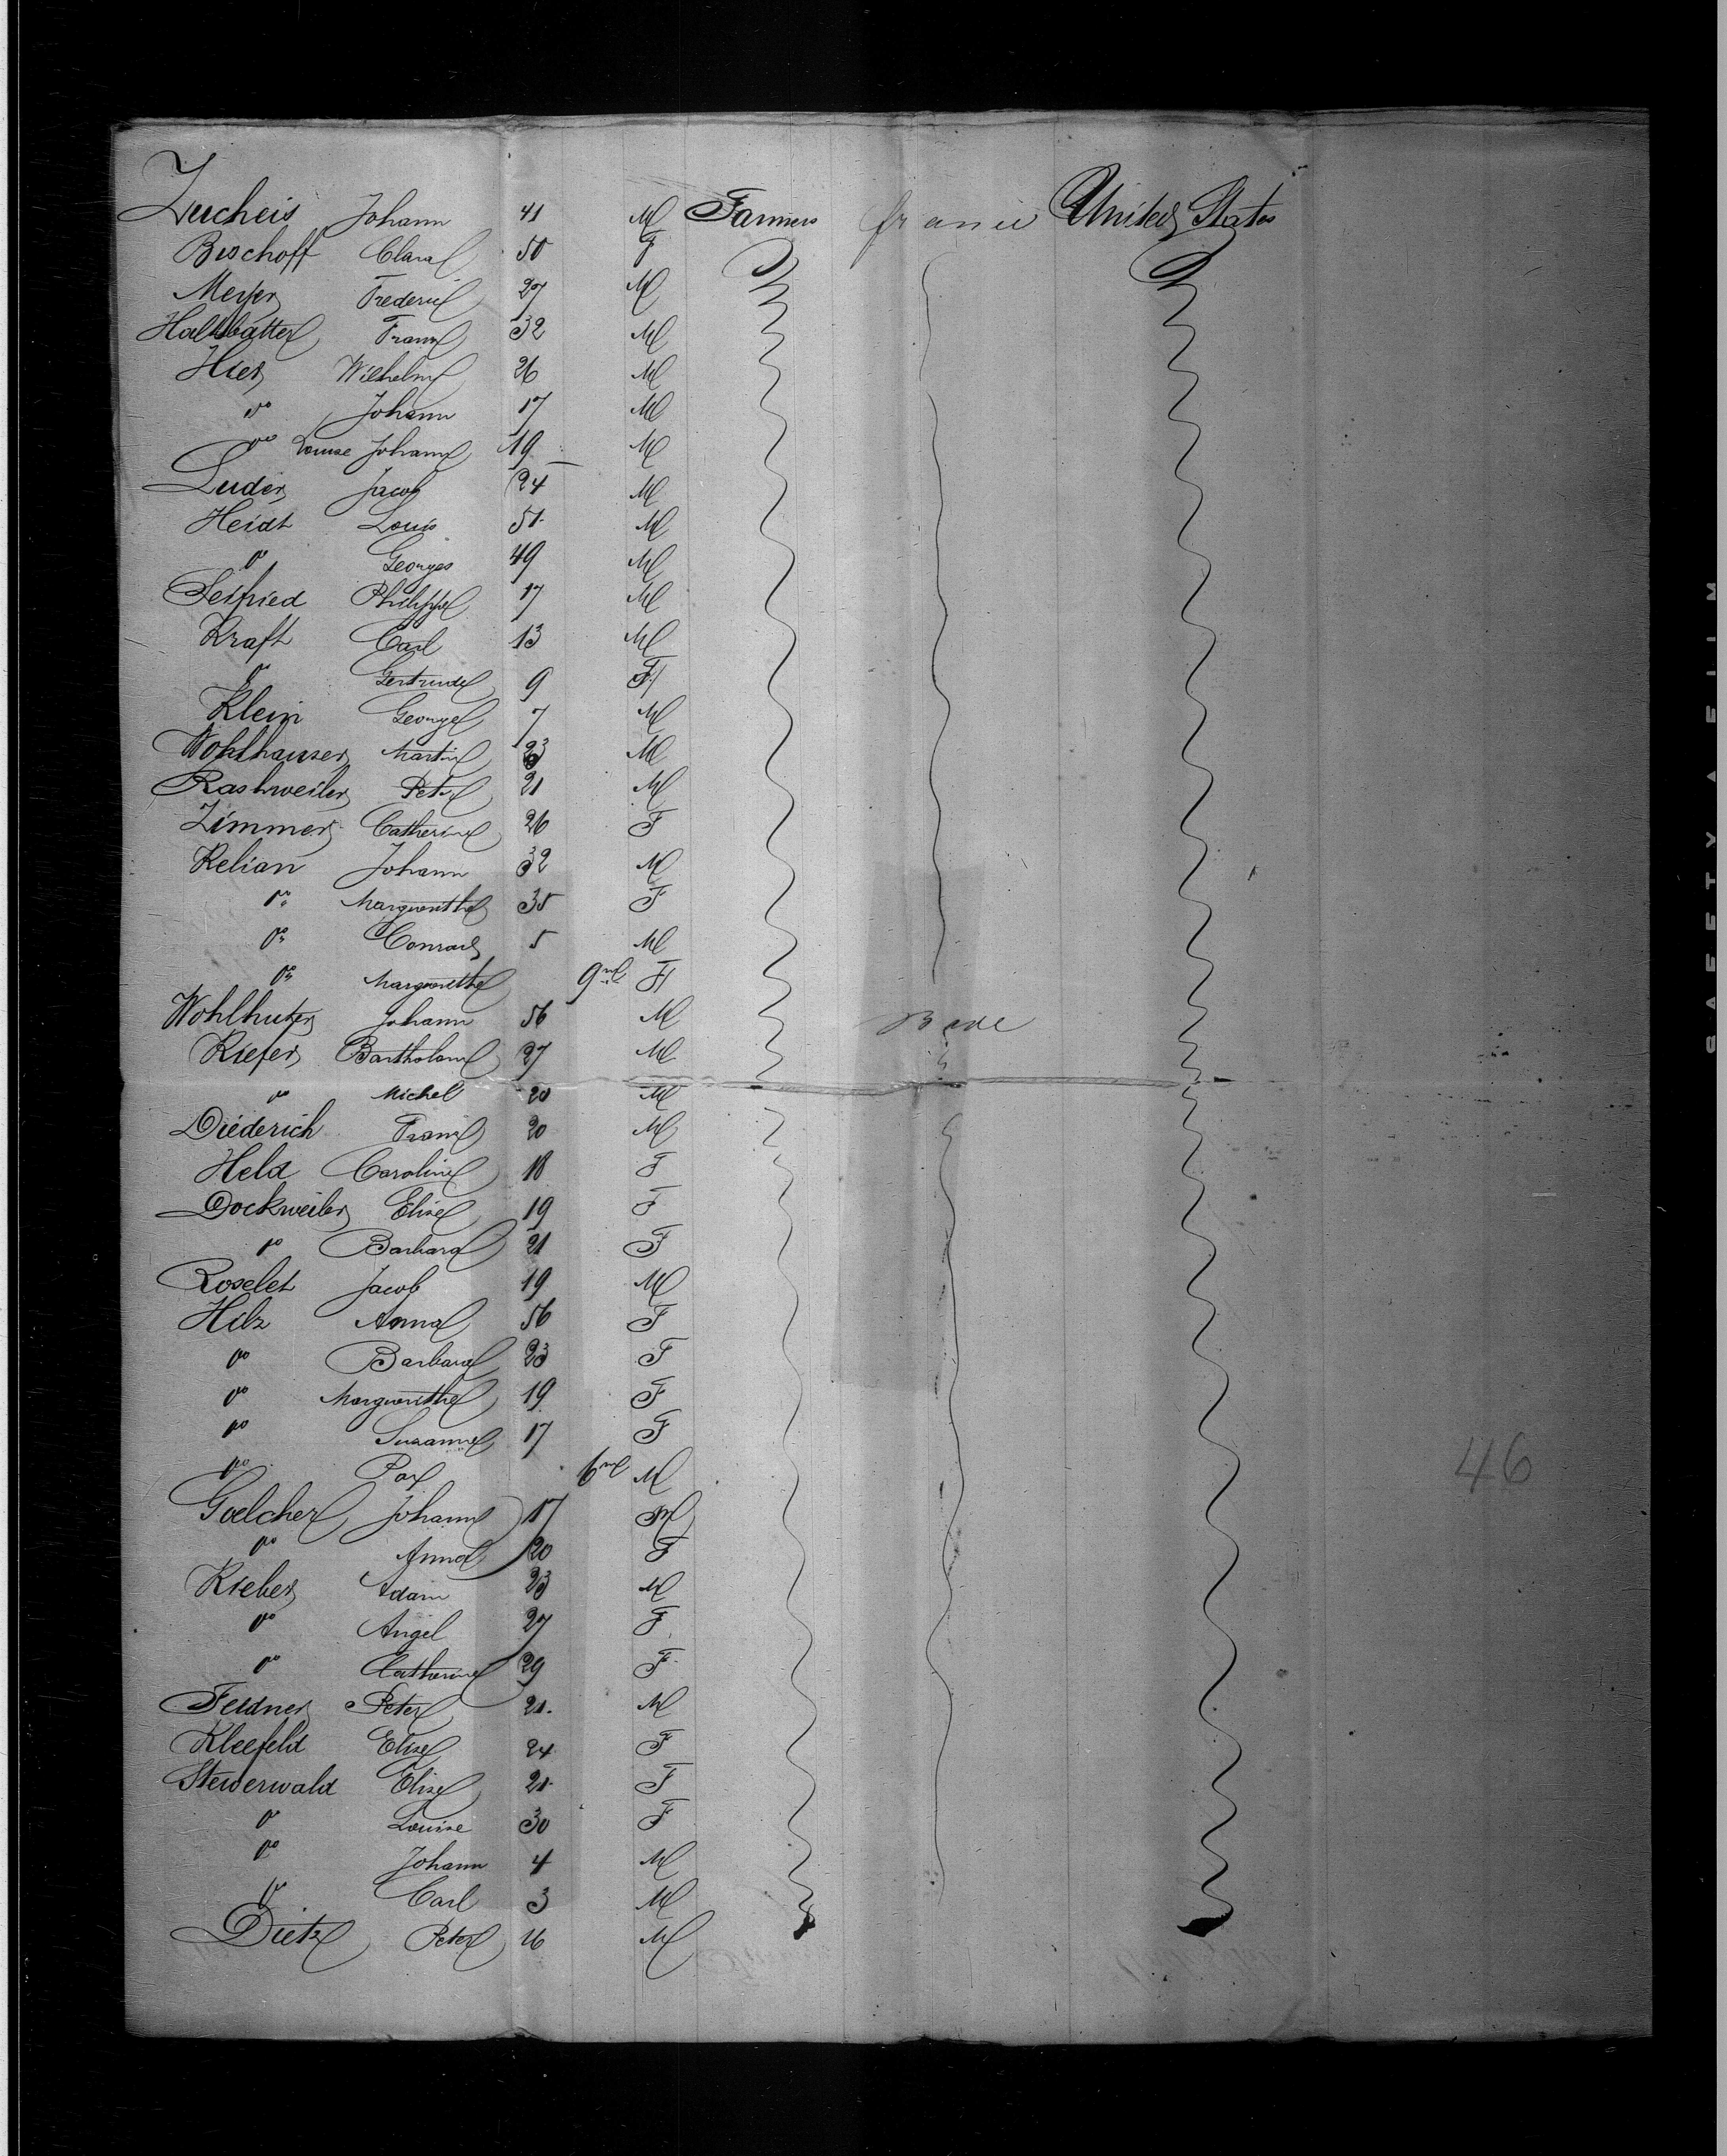 Zucheis Johann 41 M Farmers france United States
Bischoff Clara 50 F
Meyer Frederic 27 M
Franz 32 M
Hier Wilhelm 26 M
do Johann 17 M
do Louise Johann 19 M
Luder Jacob 24 M
Heidt Louis 51 M
do Georges 49 M
Seifried Philippe 17 M
Kraft Carl 13 M
do Gertrude 9 F
Klein George 7 M
Wohlhauser Martin 23 M
Rashweiler Peter 21 M
Zimmer Catherine 26 F
Kelian Johann 32 M
do Marguerithe 35 F
do Conrad 5 M
do Marguerithe 9 m F
Wohlhuter Johann 56 M Bade
Kiefer Bartholome 27 M
do Michel 20 M
Diederich Franz 20 M
Held Caroline 18 F
Dockweiler Elise 19 F
do Barbara 21 F
Roselet Jacob 19 M
Hilz Anna 56 F
do Barbara 23 F
do Marguerithe 19 F
do Suzanne 17 F
do 6 m M
Goelcher Johann 17 M
do Anna 20 F
Kieber Adam 23 M
do Angel 27 F
do Catherine 29 F
Feldner Peter 21 M
Kleefeld Elise 24 F
Steuerwald Elise 21 F
do Louise 30 F
do Johann 4 M
do Carl 3 M
Dietz Peter 16 M
46
SAFETY A FILM